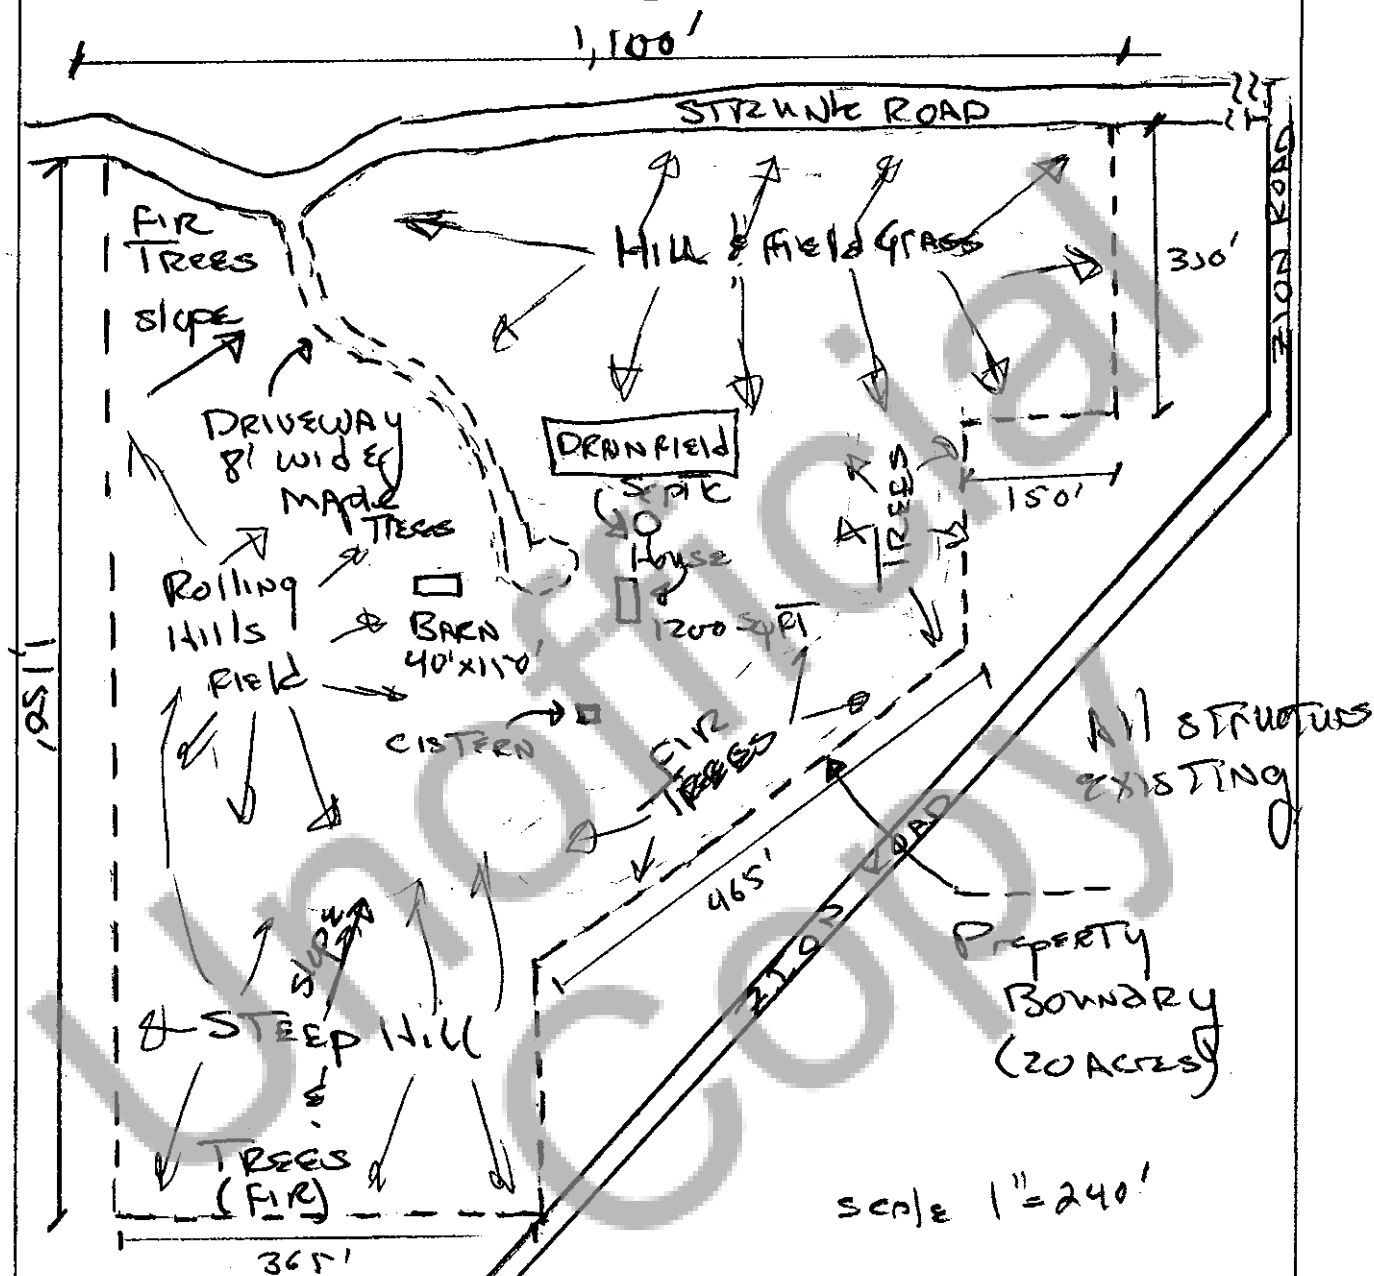 1,100'
STRUNK ROAD
ZION ROAD
FIR
TREES
slope
Hill & Field Grass
300'
DRIVEWAY
8' wide
MAPLE
TREES
DRAINFIELD
SEPTIC
House
1200 SqFT
TREES
150'
Rolling
Hills
Field
BARN
CISTERN
FIR
TREES
1,150'
All STRUCTURES
EXISTING
465'
ZION ROAD
Property
Boundary
(20 Acres)
Slope
& STEEP Hill
&
TREES
(FIR)
365'
scale 1"=240'
Unofficial
Copy